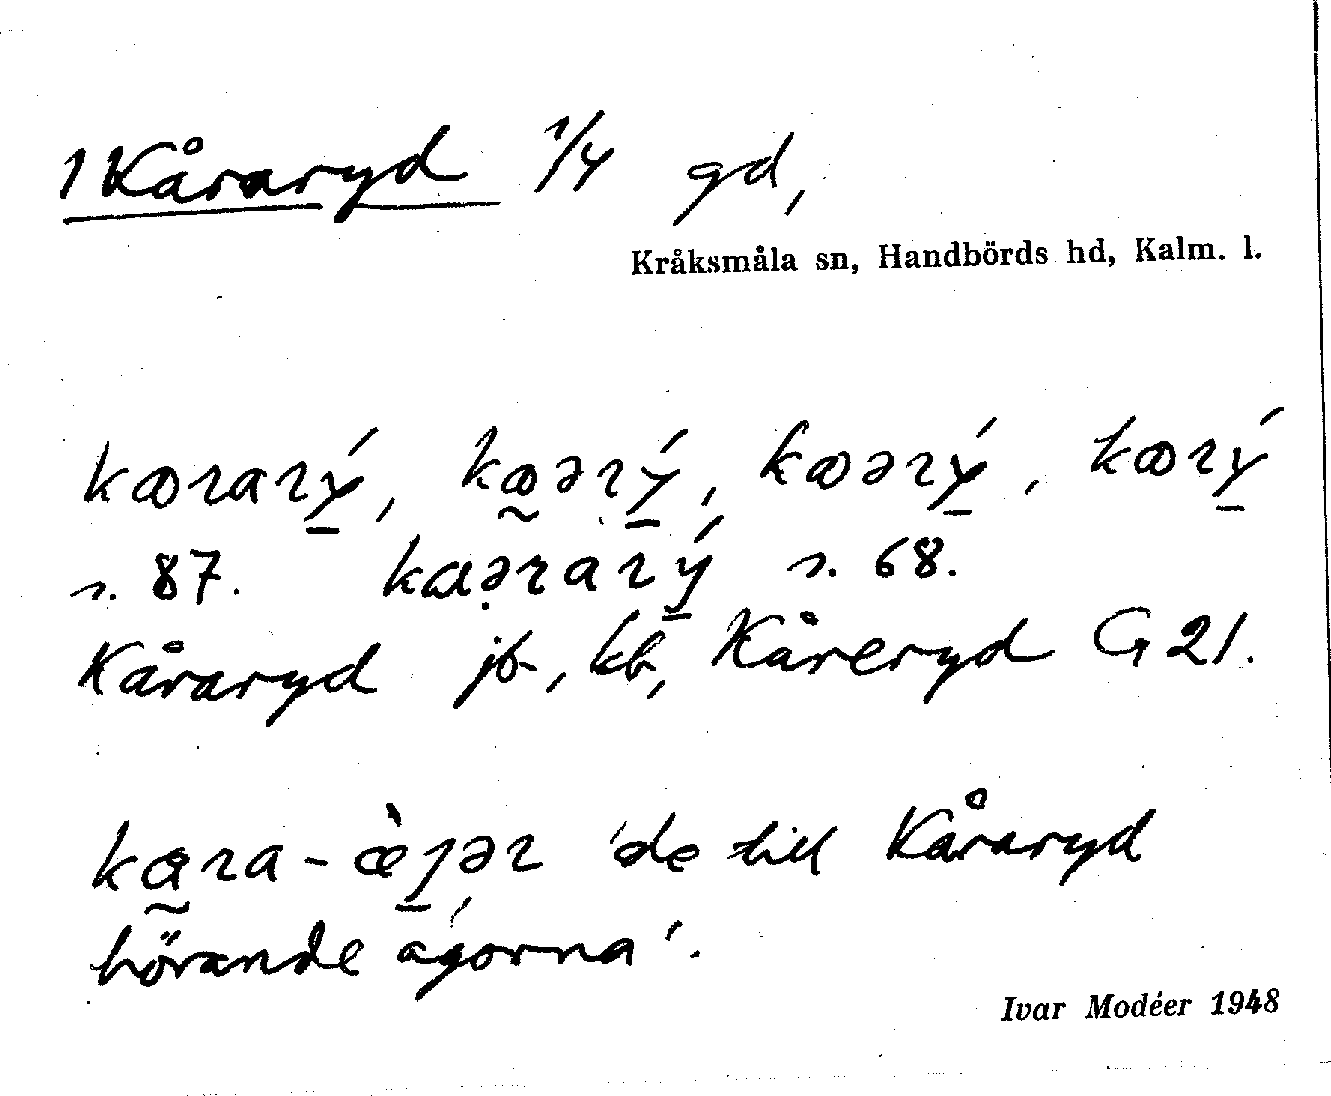 1 Kåraryd 1/4 gd,
Kråksmåla sn, Handbörds hd, Kalm. l.
kærarý, kæərý, kæərý, kærý
s. 87. kaərarý s. 68.
Kåraryd jb, kb, Kåreryd G 21.
kara-æ̀jər 'de till Kåraryd
hörande ägorna'.
Ivar Modéer 1948